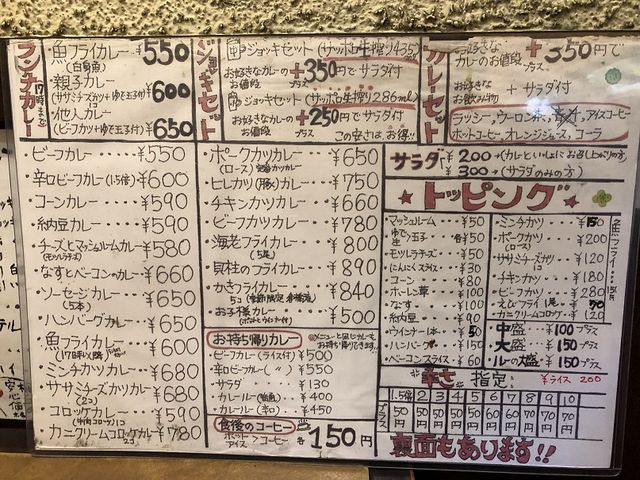 ランチカレー
17時まで
・魚フライカレー ¥550
(白身魚)
・親子カレー ¥600
(ササミチーズカツ+ゆで玉子付)
・他人カレー ¥650
(ビーフカツ+ゆで玉子付)
ジョッキセット
中ジョッキセット(サッポロ生搾り435)
お好きなカレーのお値段 +350円でサラダ付
プラス
ジョッキセット(サッポロ生搾り286ml)
お好きなカレーのお値段 +250円でサラダ付
プラス この安さは、お得!!
カレーセット
お好きなカレーのお値段 +350円で
プラス
お好きなお飲み物 + サラダ付
ラッシー、ウーロン茶、アイスコーヒー
ホットコーヒー、オレンジジュース、コーラ
・ビーフカレー・・・・¥550
・辛口ビーフカレー(1.5倍)¥600
・コーンカレー・・・・¥590
・納豆カレー・・・・¥590
・チーズとマッシュルームカレー ¥580
(モツァレラチーズ)
・なすとベーコンのカレー ¥660
・ソーセージカレー ¥650
(5本)
・ハンバーグカレー ¥650
・魚フライカレー ¥600
(17時以降)
・ミンチカツカレー ¥680
・ササミチーズカツカレー ¥680
(2コ)
・コロッケカレー ¥590
(牛肉コロッケ1コ)
・カニクリームコロッケカレー ¥780
2コ
・ポークカツカレー ¥650
(ロース)
・ヒレカツ(豚)カレー ¥750
・チキンカツカレー ¥660
・ビーフカツカレー ¥780
・海老フライカレー ¥800
(5尾)
・貝柱のフライカレー ¥890
・かきフライカレー ¥840
5コ(季節限定)
・お子様カレー ¥500
お持ち帰りカレー
メニューと同じカレーもお持ち帰りできます。
・ビーフカレー(ライス付)¥500
・辛口ビーフカレー( 〃 )¥550
・サラダ ¥130
・カレールー ¥400
・カレールー(辛口)¥450
食後のコーヒー
ホット
アイス >コーヒー 各150円
サラダ ¥200→(カレーといっしょにお召し上がりの方)
¥300→(サラダのみの方)
★トッピング★
・マッシュルーム ¥50
・ゆで 生>玉子 各¥50
・モツァレラチーズ ¥50
・にんにくスライス ¥30
・コーン ¥80
・ホーレン草 ¥100
・なす ¥100
・納豆 ¥90
・ウインナー1本 ¥50
・ハンバーグ ¥150
・ベーコンスライス ¥60
・ミンチカツ ¥150
・ポークカツ ¥200
(ロース)
・ササミチーズカツ ¥120
1コ
・チキンカツ ¥180
・ビーフカツ ¥280
・えびフライ
・カニクリームコロッケ ¥120
中盛 ¥100プラス
大盛 ¥150プラス
ルーの大盛 ¥150プラス
辛さ指定 ¥ライス 200
1.5倍 2 3 4 5 6 7 8 9 10
プラス 50円 50円 50円 50円 50円 60円 60円 70円 70円 70円
裏面もあります!!